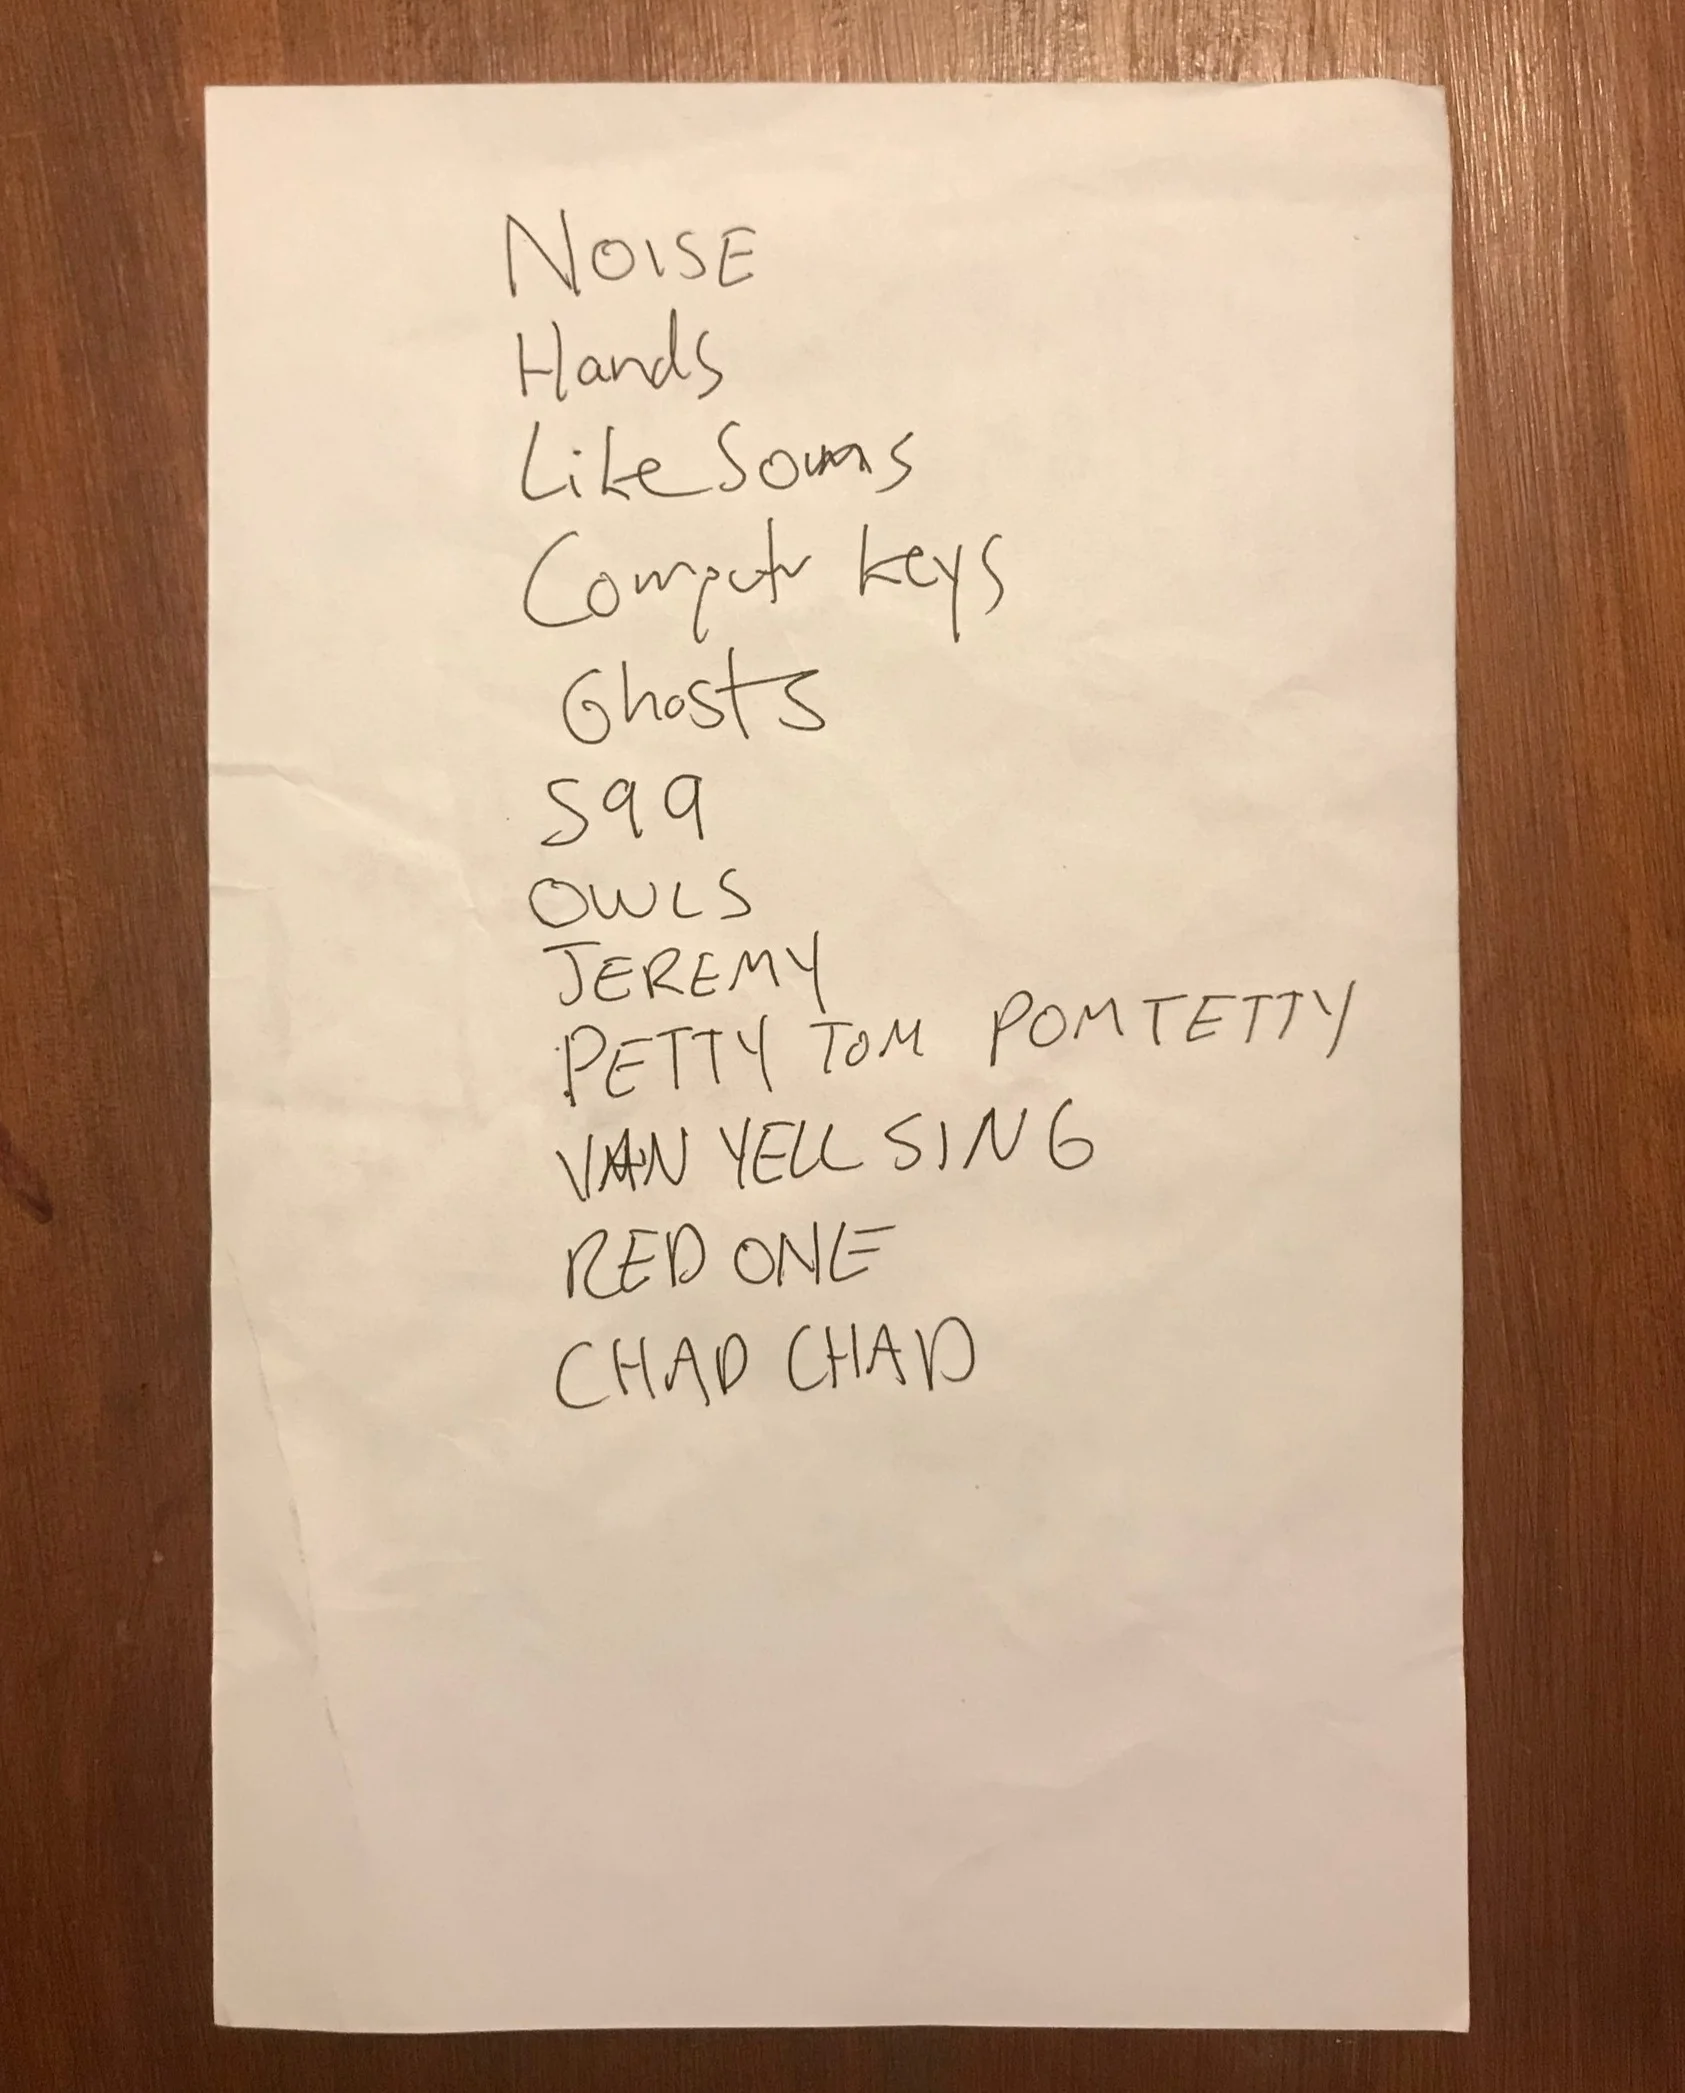 NOISE
Hands
Like
Computr keys
Ghosts
S99
OWLS
JEREMY
PETTY TOM POMTETTY
VAN YELL SING
RED ONE
CHAD CHAD